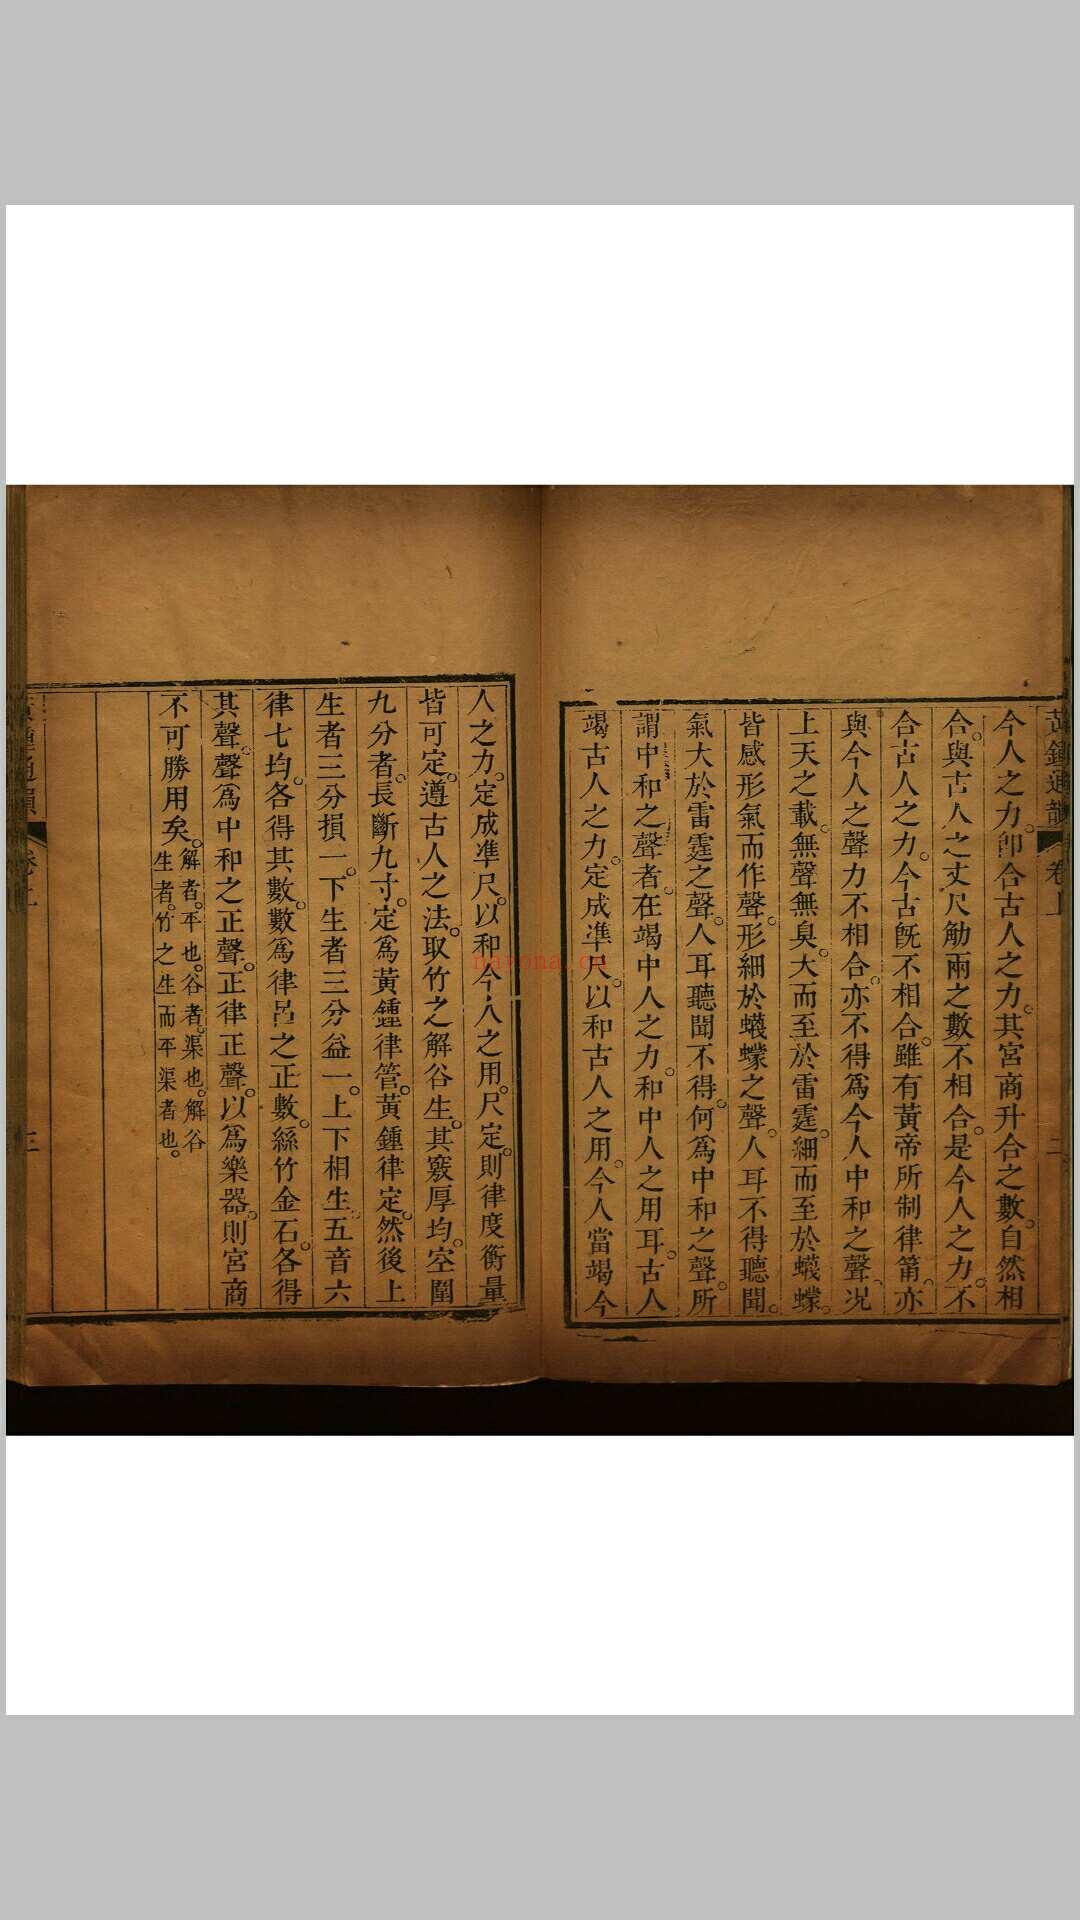 黃鍾通韻 卷上 二
今人之力。卽合古人之力。其宮商升合之數。自然相
合。與古人之丈尺觔兩之數不相合。是今人之力。不
合古人之力。今古旣不相合。雖有黃帝所制律筩。亦
與今人之聲力不相合。亦不得爲今人中和之聲。况
上天之載。無聲無臭。大而至於雷霆。細而至於蠛蠓。
皆感形氣而作聲。形細於蠛蠓之聲。人耳不得聽聞。
氣大於雷霆之聲。人耳聽聞不得。何爲中和之聲。所
謂中和之聲者。在竭中人之力。和中人之用耳。古人
竭古人之力。定成準尺。以和古人之用。今人當竭今
人之力。定成準尺。以和今人之用。尺定。則律度衡量
皆可定。遵古人之法。取竹之解谷生。其竅厚均。空圍
九分者。長斷九寸。定爲黃鍾律管。黃鍾律定。然後上
生者三分損一。下生者三分益一。上下相生。五音六
律七均。各得其數。數爲律呂之正數。絲竹金石。各得
其聲。聲爲中和之正聲。正律正聲。以爲樂器。則宮商
不可勝用矣。解者。平也。谷者。渠也。解谷
生者。竹之生而平渠者也。
黃鍾通韻 卷上 三
nayona.cn